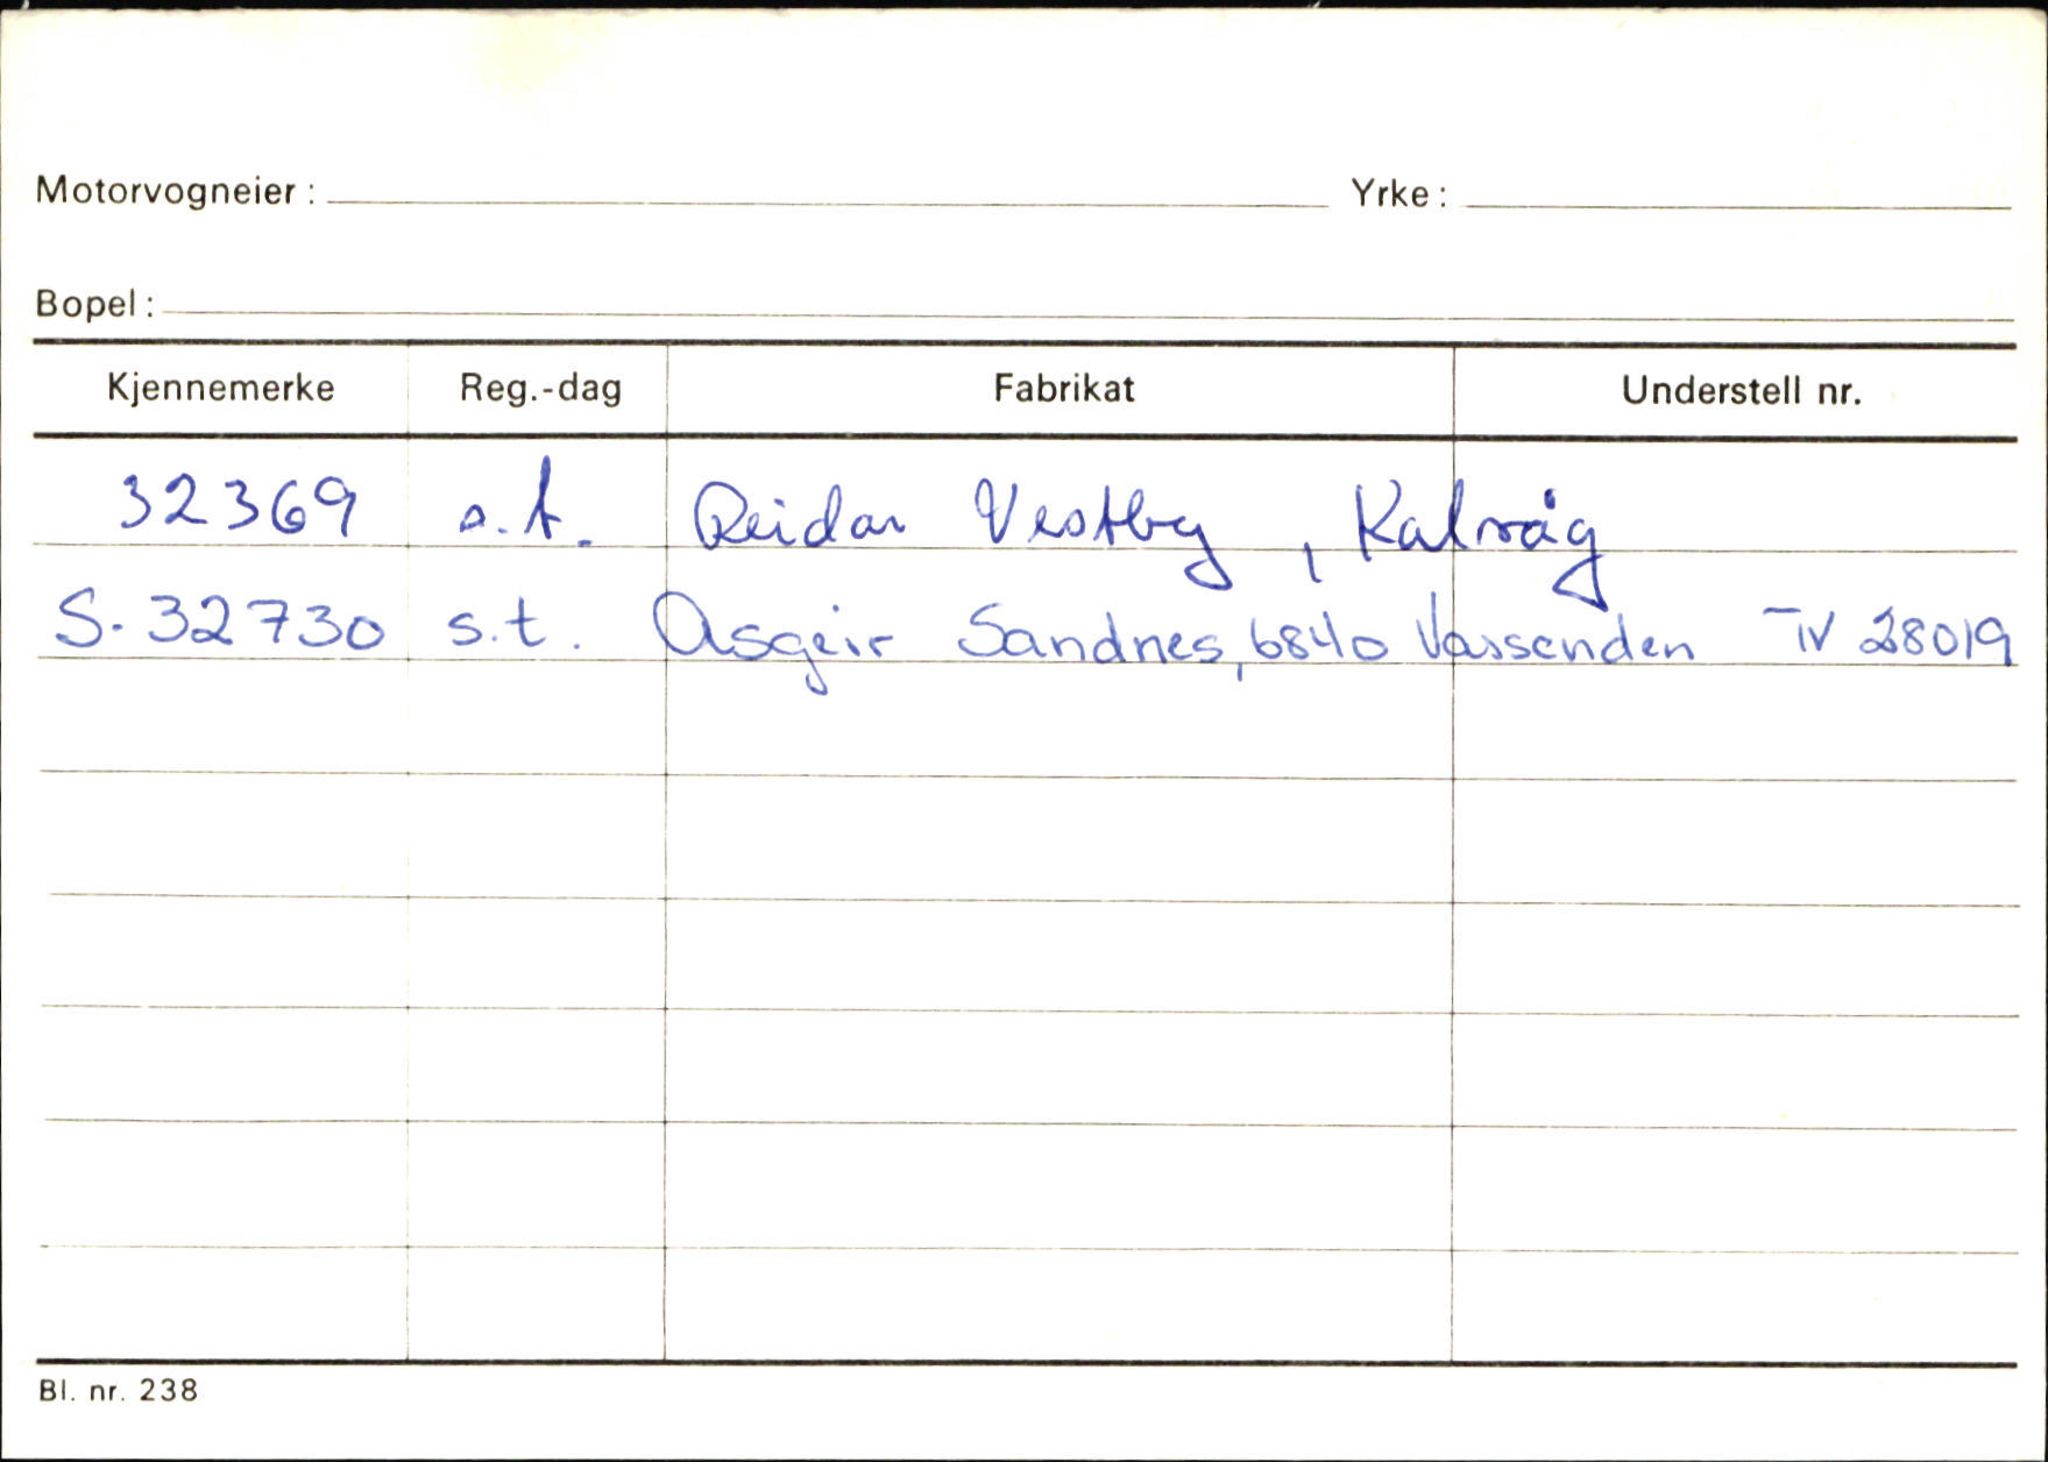 Motorvogneier : Yrke :
Bopel :
Kjennemerke Reg.-dag Fabrikat Understell nr.
32369 s.t. Reidar Vestby , Kalvåg
S. 32730 s.t. Asgeir Sandnes, 6840 Vassenden TV 28019
Bl. nr. 238